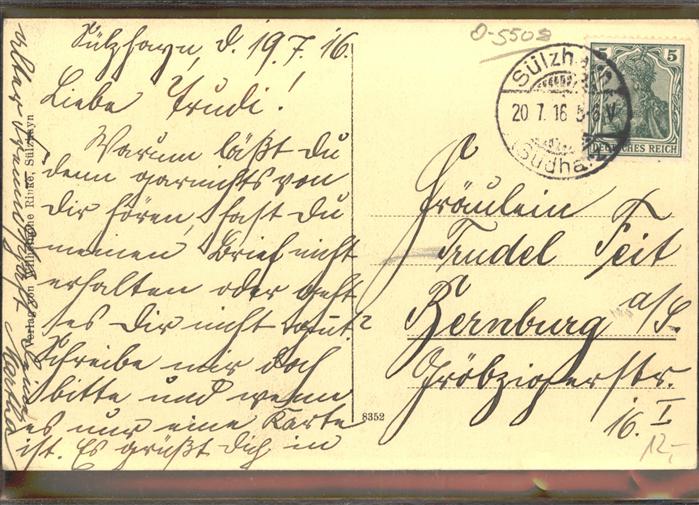 Sülzhayn, d. 19.7.16.
Liebe Trudi!
Warum läßt Du
denn garnichts von
Dir hören, hast Du
meinen Brief nicht
erhalten oder geht
es Dir nicht gut?
Schreibe mir doch
bitte und wenn
es nur eine Karte
ist. Es grüßt Dich in
aller Freundschaft
Deine
Martha
Verlag von Rinke, Sülzhayn
8352
O-5508
Sülzhayn
20.7.16 5-6 V
(Südharz)
5 5
DEUTSCHES REICH
Fräulein
Trudel Feit
Bernburg a/S.
Gröbzigerstr.
16. I
12,-